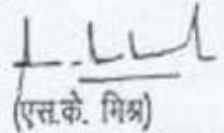 (एस.के. मिश्र)